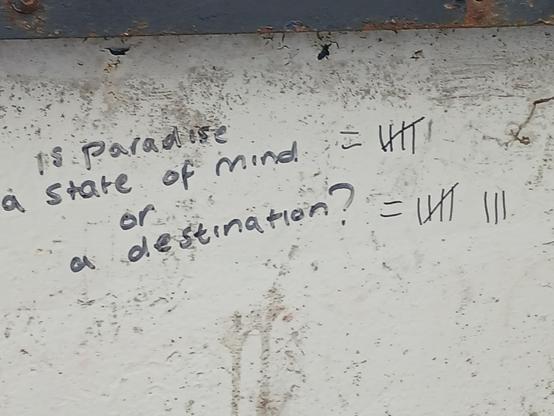 is paradise
a state of mind = 卌
or
a destination? = 卌 |||